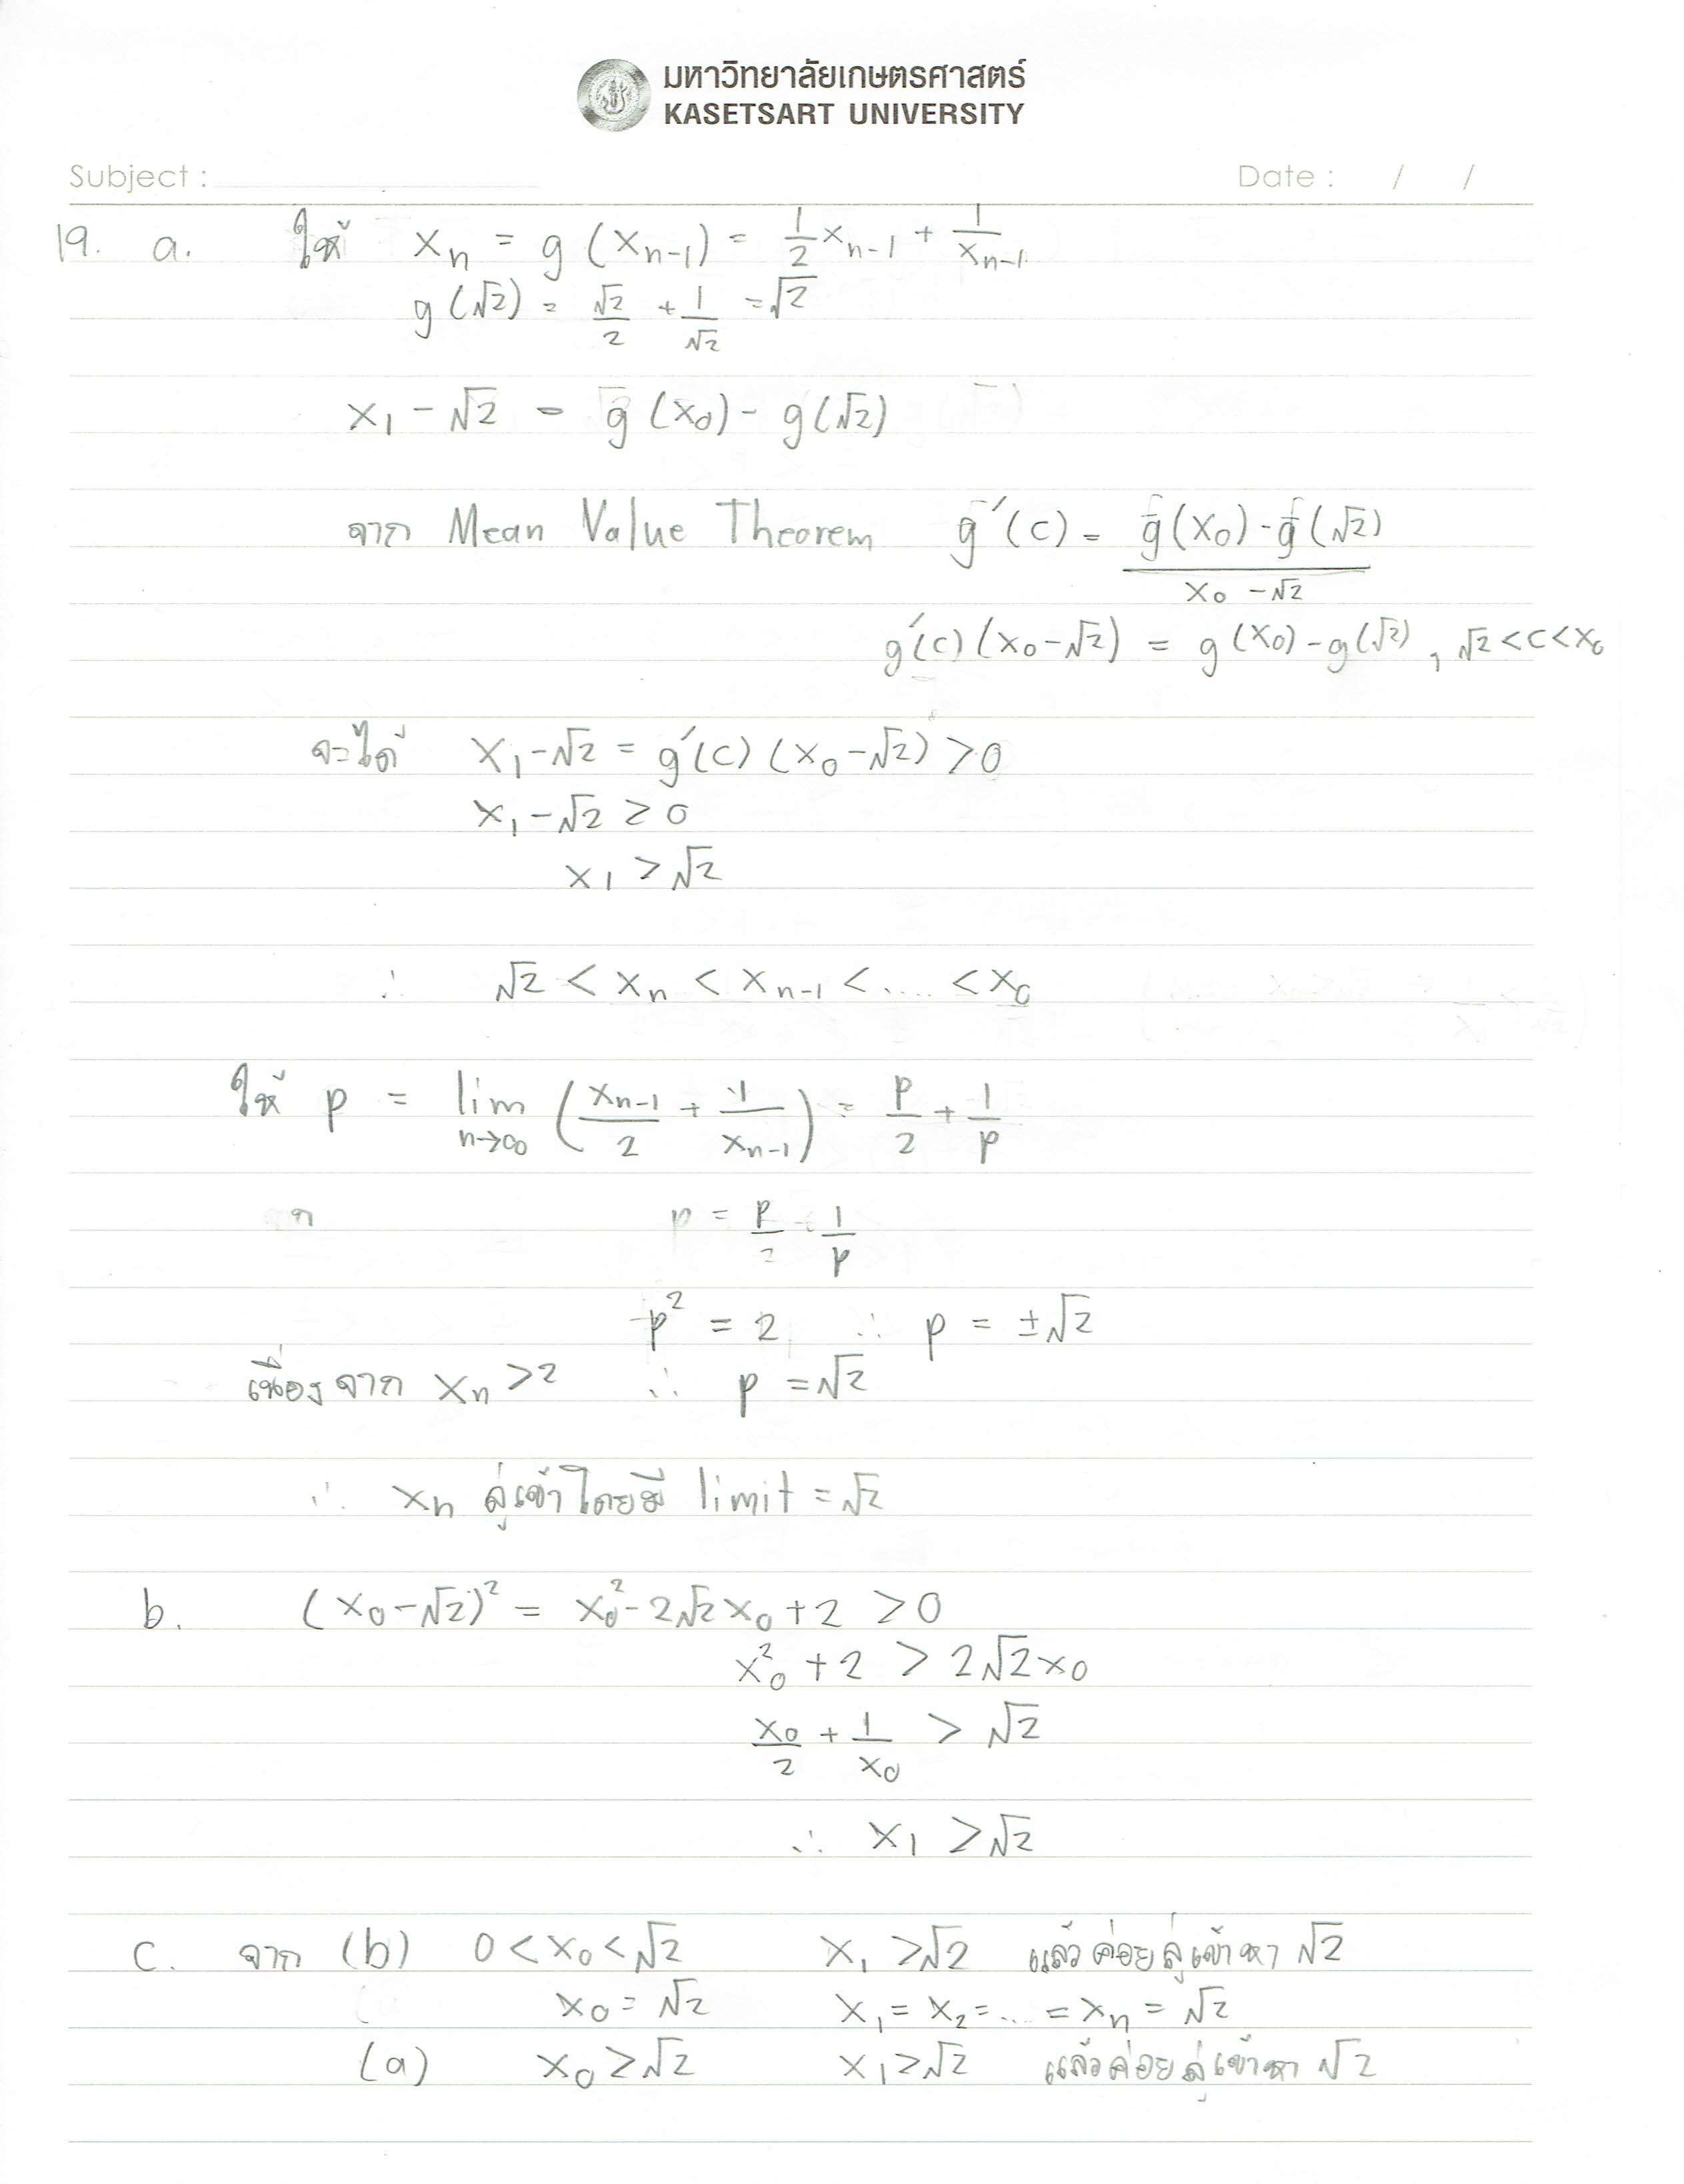 มหาวิทยาลัยเกษตรศาสตร์
KASETSART UNIVERSITY
Subject : Date : / /
19. a. ให้ xₙ = g (xₙ₋₁) = 1/2 xₙ₋₁ + 1/xₙ₋₁
g (√2) = √2/2 + 1/√2 = √2
x₁ - √2 = g (x₀) - g (√2)
จาก Mean Value Theorem g′(c) = (g(x₀) - g(√2))/(x₀ - √2)
g′(c) (x₀ - √2) = g (x₀) - g (√2) , √2 < c < x₀
จะได้ x₁ - √2 = g′(c) (x₀ - √2) > 0
x₁ - √2 ≥ 0
x₁ > √2
∴ √2 < xₙ < xₙ₋₁ < .... < x₀
ให้ p = lim n→∞ (xₙ₋₁/2 + 1/xₙ₋₁) = p/2 + 1/p
p = p/2 + 1/p
p² = 2 ∴ p = ±√2
เนื่องจาก xₙ > 2 ∴ p = √2
∴ xₙ ลู่เข้าโดยมี limit = √2
b. (x₀ - √2)² = x₀² - 2√2 x₀ + 2 > 0
x₀² + 2 > 2√2 x₀
x₀/2 + 1/x₀ > √2
∴ x₁ > √2
c. จาก (b) 0 < x₀ < √2 x₁ > √2 แล้วค่อยลู่เข้าหา √2
x₀ = √2 x₁ = x₂ = ... = xₙ = √2
(a) x₀ ≥ √2 x₁ ≥ √2 แล้วค่อยลู่เข้าหา √2